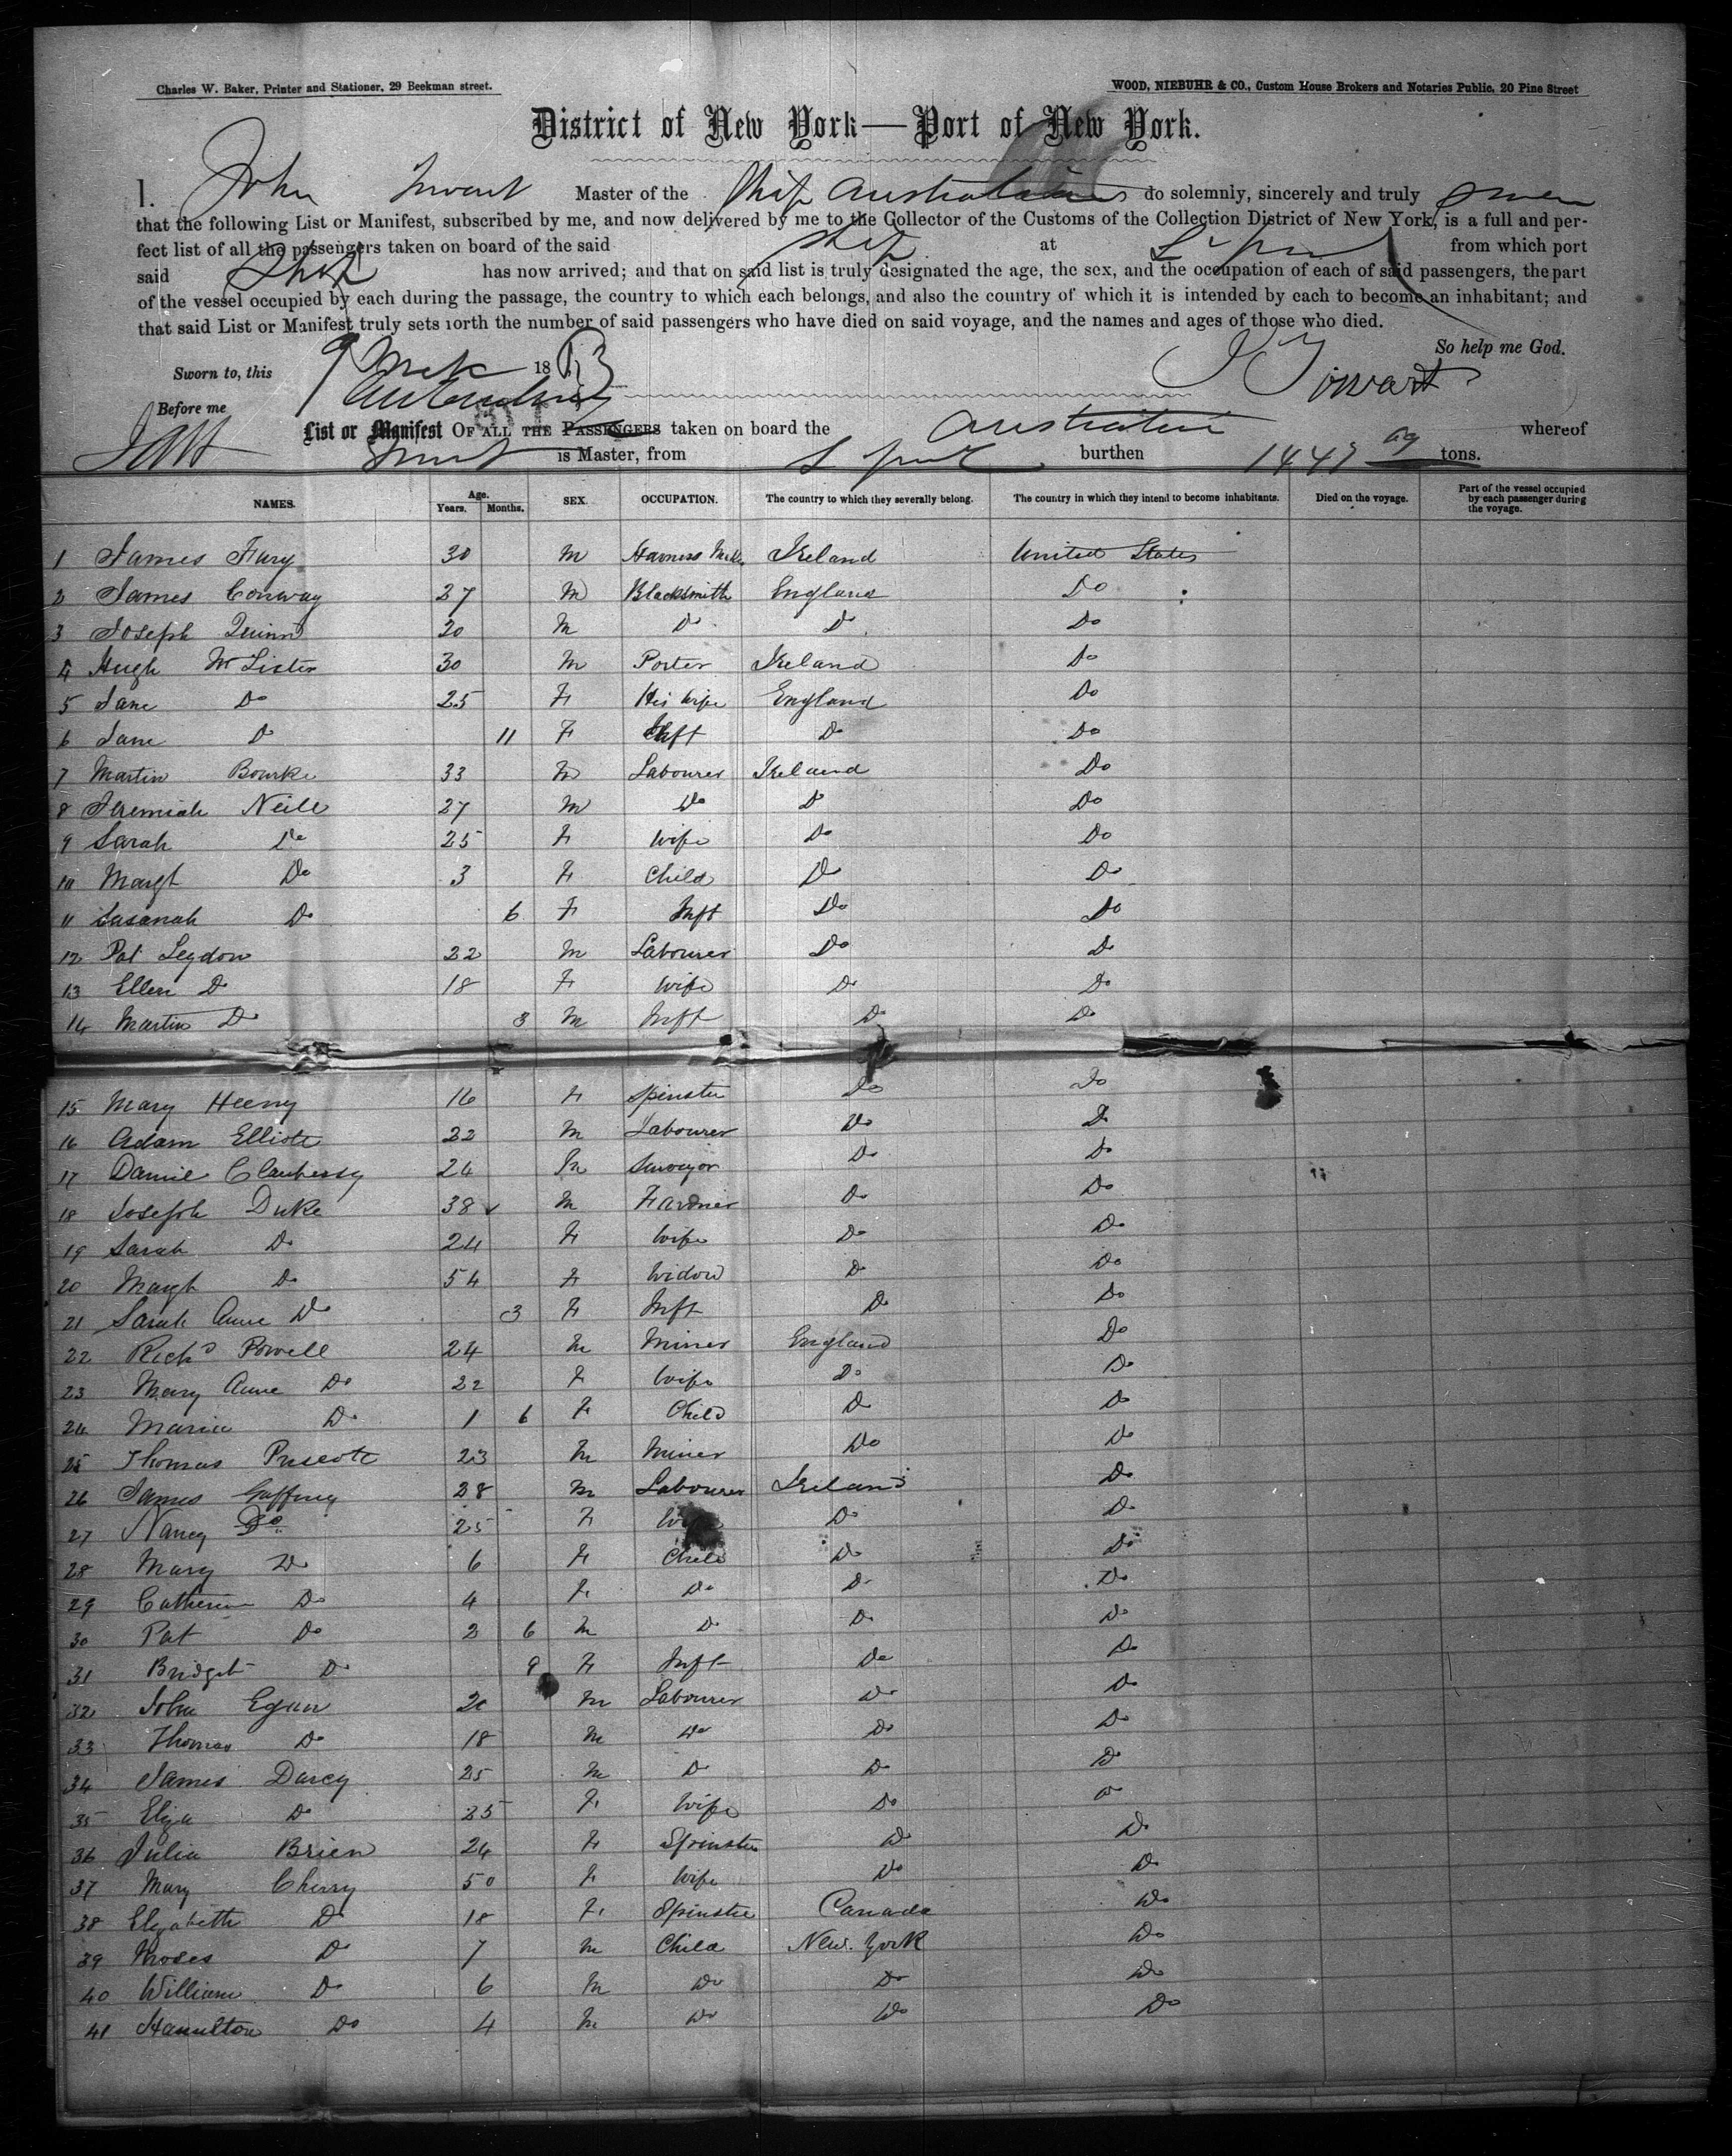 Charles W. Baker, Printer and Stationer, 29 Beekman street.
WOOD, NIEBUHR & CO., Custom House Brokers and Notaries Public, 20 Pine Street
District of New York—Port of New York.
I. John Master of the Ship do solemnly, sincerely and truly
that the following List or Manifest, subscribed by me, and now delivered by me to the Collector of the Customs of the Collection District of New York, is a full and per-
fect list of all the passengers taken on board of the said Ship at L'pool from which port
said Ship has now arrived; and that on said list is truly designated the age, the sex, and the occupation of each of said passengers, the part
of the vessel occupied by each during the passage, the country to which each belongs, and also the country of which it is intended by each to become an inhabitant; and
that said List or Manifest truly sets forth the number of said passengers who have died on said voyage, and the names and ages of those who died.
So help me God.
Sworn to, this 9 1863
Before me
List or Manifest OF ALL THE PASSENGERS taken on board the whereof
is Master, from L'pool burthen tons.
NAMES. Age. Years. Months. SEX. OCCUPATION. The country to which they severally belong. The country in which they intend to become inhabitants. Died on the voyage. Part of the vessel occupied by each passenger during the voyage.
1 James 30 M Harness Ireland United States
2 James Conway 27 M Blacksmith England Do
3 Joseph Quinn 20 M Do Do Do
4 Hugh McLister 30 M Porter Ireland Do
5 Jane Do 25 F His Wife England Do
6 Jane Do 11 F Inft Do Do
7 Martin Bourke 33 M Labourer Ireland Do
8 Jeremiah Neill 27 M Do Do Do
9 Sarah Do 25 F Wife Do Do
10 Margt Do 3 F Child Do Do
11 Susanah Do 6 F Inft Do Do
12 Pat Leydon 22 M Labourer Do Do
13 Ellen Do 18 F Wife Do Do
14 Martin Do 3 M Inft Do Do
15 Mary Heeny 16 F Spinster Do Do
16 Adam Elliott 22 M Labourer Do Do
17 Daniel 24 M Surveyor Do Do
18 Joseph Duke 38 M Do Do
19 Sarah Do 24 F Wife Do Do
20 Margt Do 54 F Widow Do Do
21 Sarah Anne Do 3 F Inft Do Do
22 Richd Powell 24 M Miner England Do
23 Mary Anne Do 22 F Wife Do Do
24 Maria Do 1 6 F Child Do Do
25 Thomas Prescott 23 M Miner Do Do
26 James Gaffney 28 M Labourer Ireland Do
27 Nancy Do 25 F Wife Do Do
28 Mary Do 6 F Child Do Do
29 Catherine Do 4 F Do Do Do
30 Pat Do 2 6 M Do Do Do
31 Bridget Do 9 F Inft Do Do
32 John Egan 20 M Labourer Do Do
33 Thomas Do 18 M Do Do Do
34 James Darcy 25 M Do Do Do
35 Eliza Do 25 F Wife Do Do
36 Julia Brien 24 F Spinster Do Do
37 Mary Cherry 50 F Wife Do Do
38 Elizabeth Do 18 F Spinster Canada Do
39 Moses Do 7 M Child New York Do
40 William Do 6 M Do Do Do
41 Hamilton Do 4 M Do Do Do